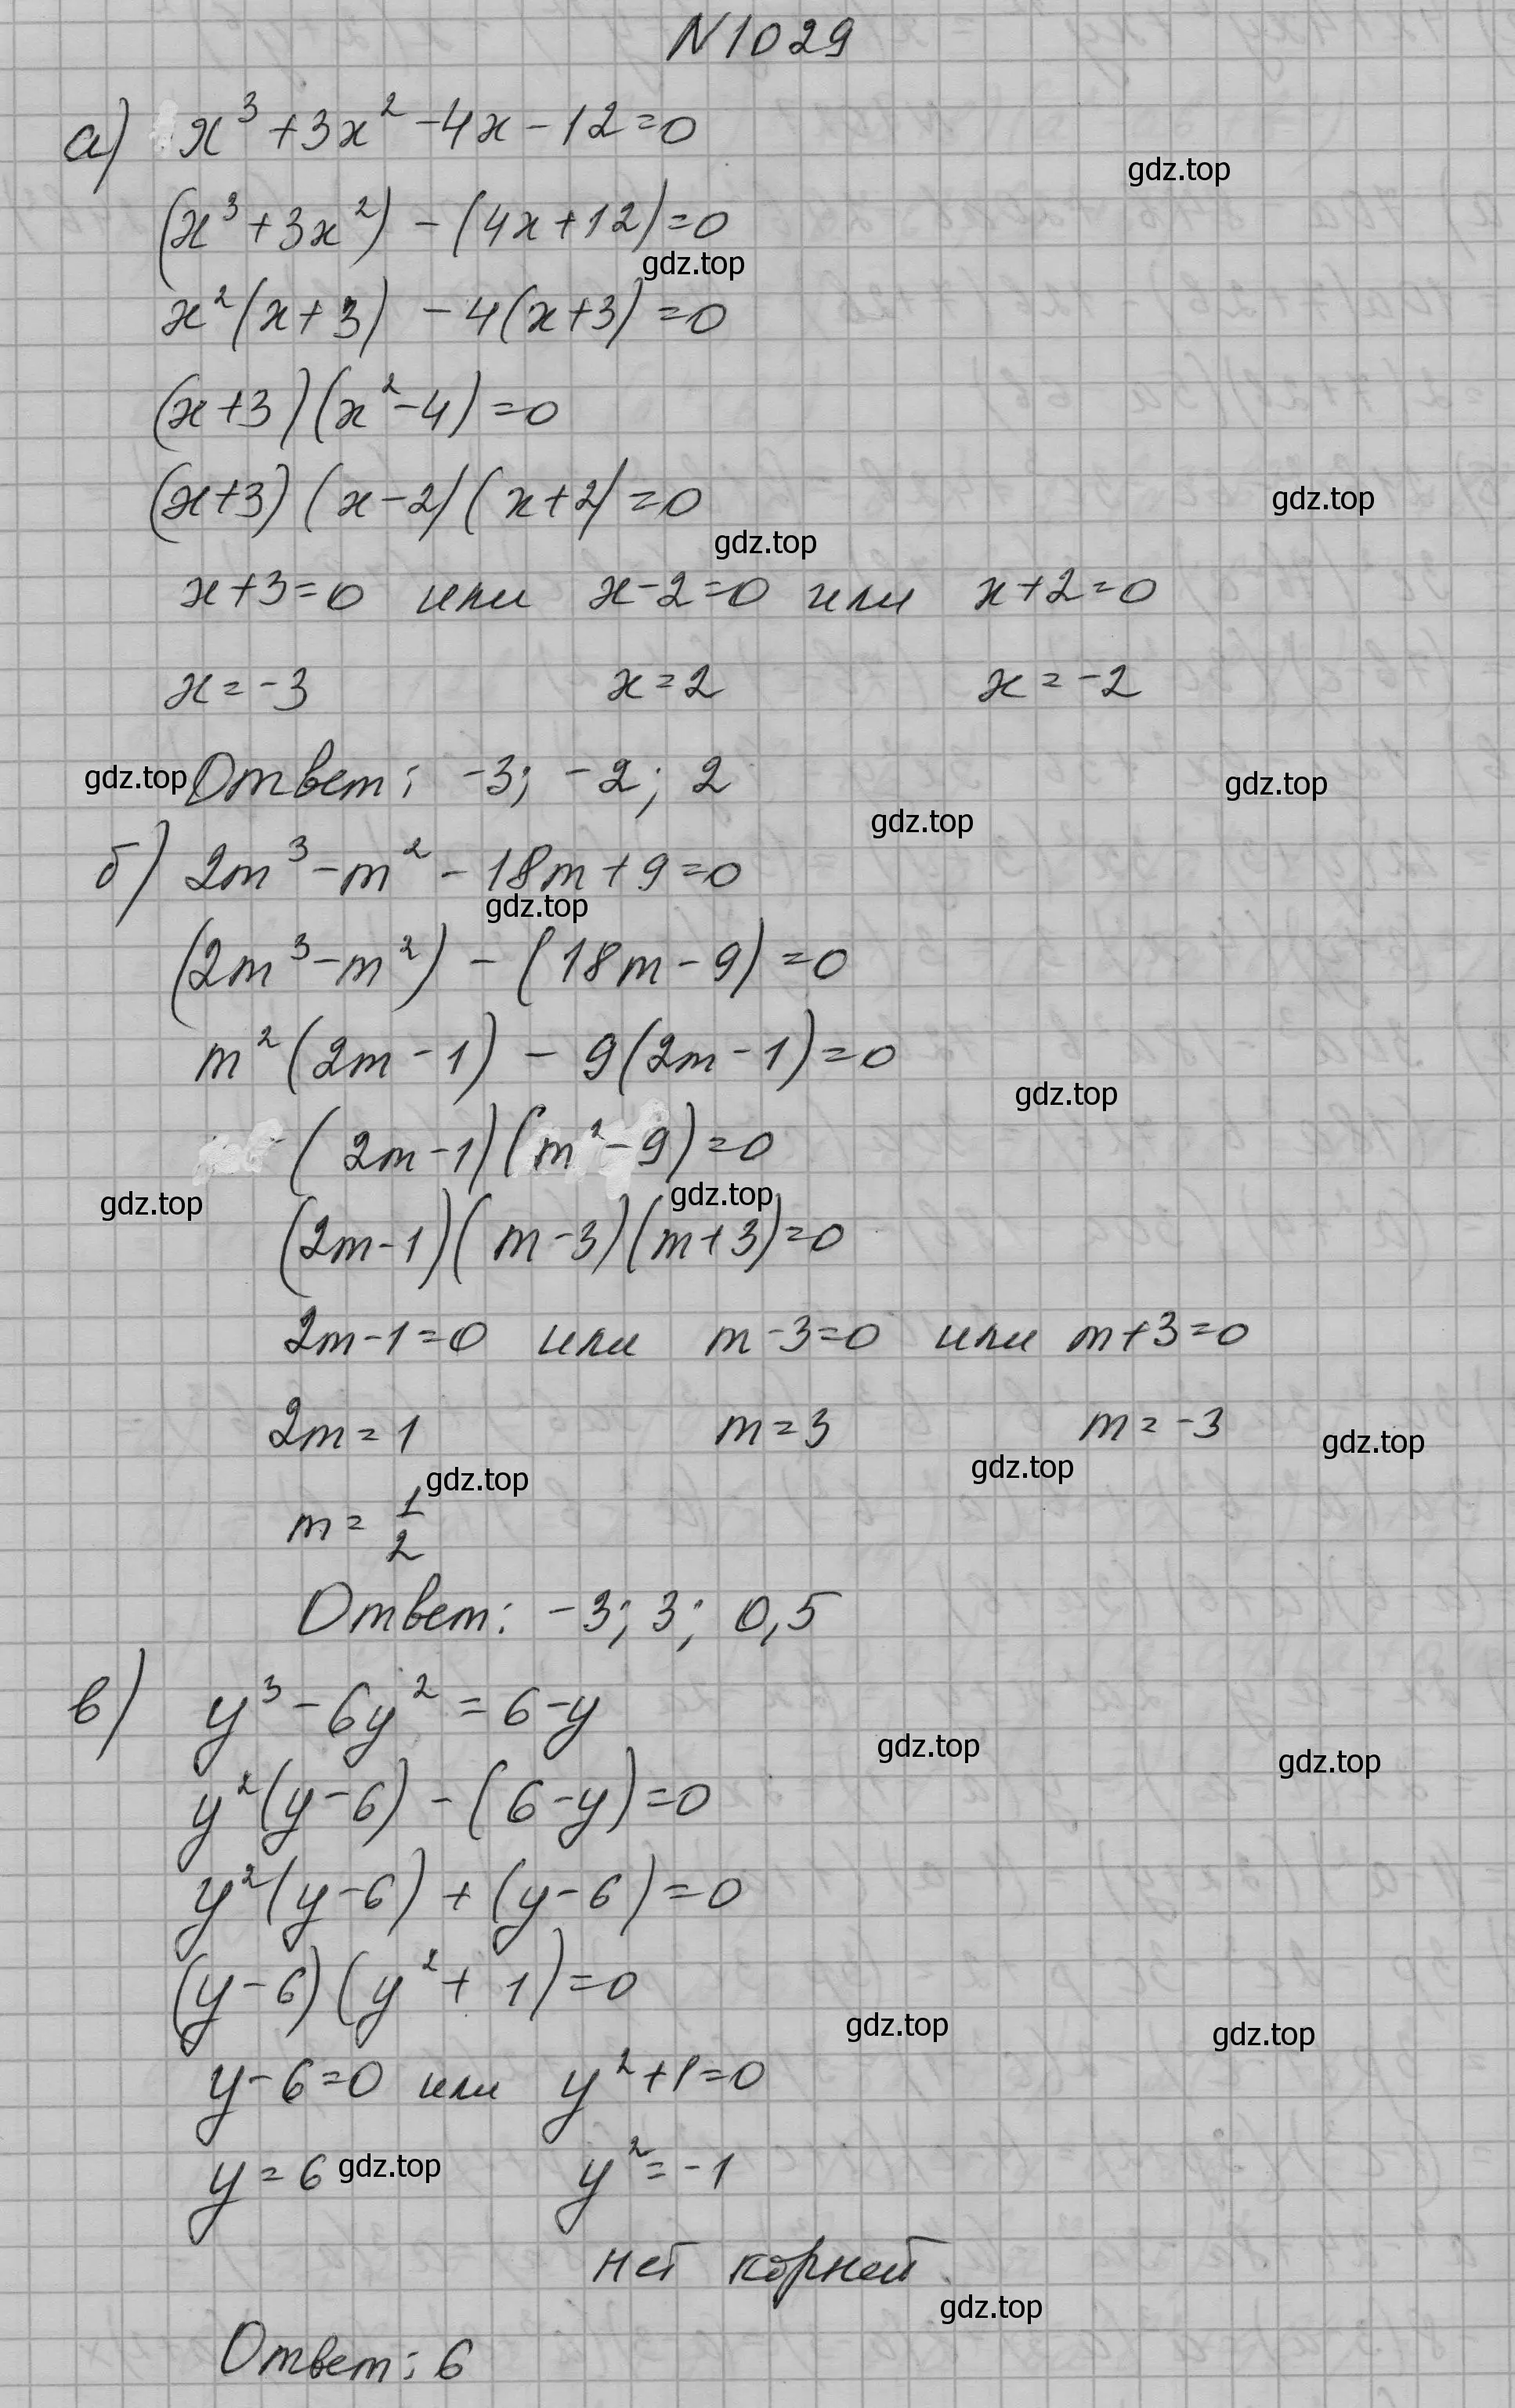 N1029
а) x³+3x²-4x-12=0
gdz.top
(x³+3x²)-(4x+12)=0
gdz.top
x²(x+3)-4(x+3)=0
(x+3)(x²-4)=0
(x+3)(x-2)(x+2)=0
gdz.top
gdz.top
x+3=0 или x-2=0 или x+2=0
x=-3 x=2 x=-2
gdz.top Ответ: -3; -2; 2 gdz.top
gdz.top
б) 2m³-m²-18m+9=0
gdz.top
(2m³-m²)-(18m-9)=0
m²(2m-1)-9(2m-1)=0
gdz.top
(2m-1)(m²-9)=0
gdz.top gdz.top
(2m-1)(m-3)(m+3)=0
2m-1=0 или m-3=0 или m+3=0
2m=1 m=3 m=-3 gdz.top
gdz.top gdz.top
m=1/2
Ответ: -3; 3; 0,5
в) y³-6y²=6-y
gdz.top gdz.top
y²(y-6)-(6-y)=0
y²(y-6)+(y-6)=0
(y-6)(y²+1)=0
gdz.top gdz.top
y-6=0 или y²+1=0
y=6 gdz.top y²=-1
нет корней
gdz.top
Ответ: 6